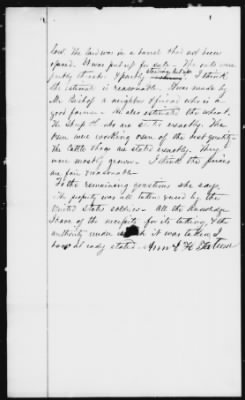 low. The land was in a barrel that had not been
opened. It was put up for sale - The oats were
partly thresh. & partly I think
the estimate is reasonable. It was made by
Mr. Bishop a neighbor & friend who is a
good farmer - He also estimated the wheat.
The sheep were exactly. The
corn were working oxen of the best quality
The cattle & hogs are stated exactly. They
were mostly grown. I think the prices
are fair & reasonable.
To the remaining questions she says,
The property was all taken & used by the
United States soldiers - All the knowledge
I have of the necessity for its taking, & the
authority under which it was taken I
have already stated. Ann